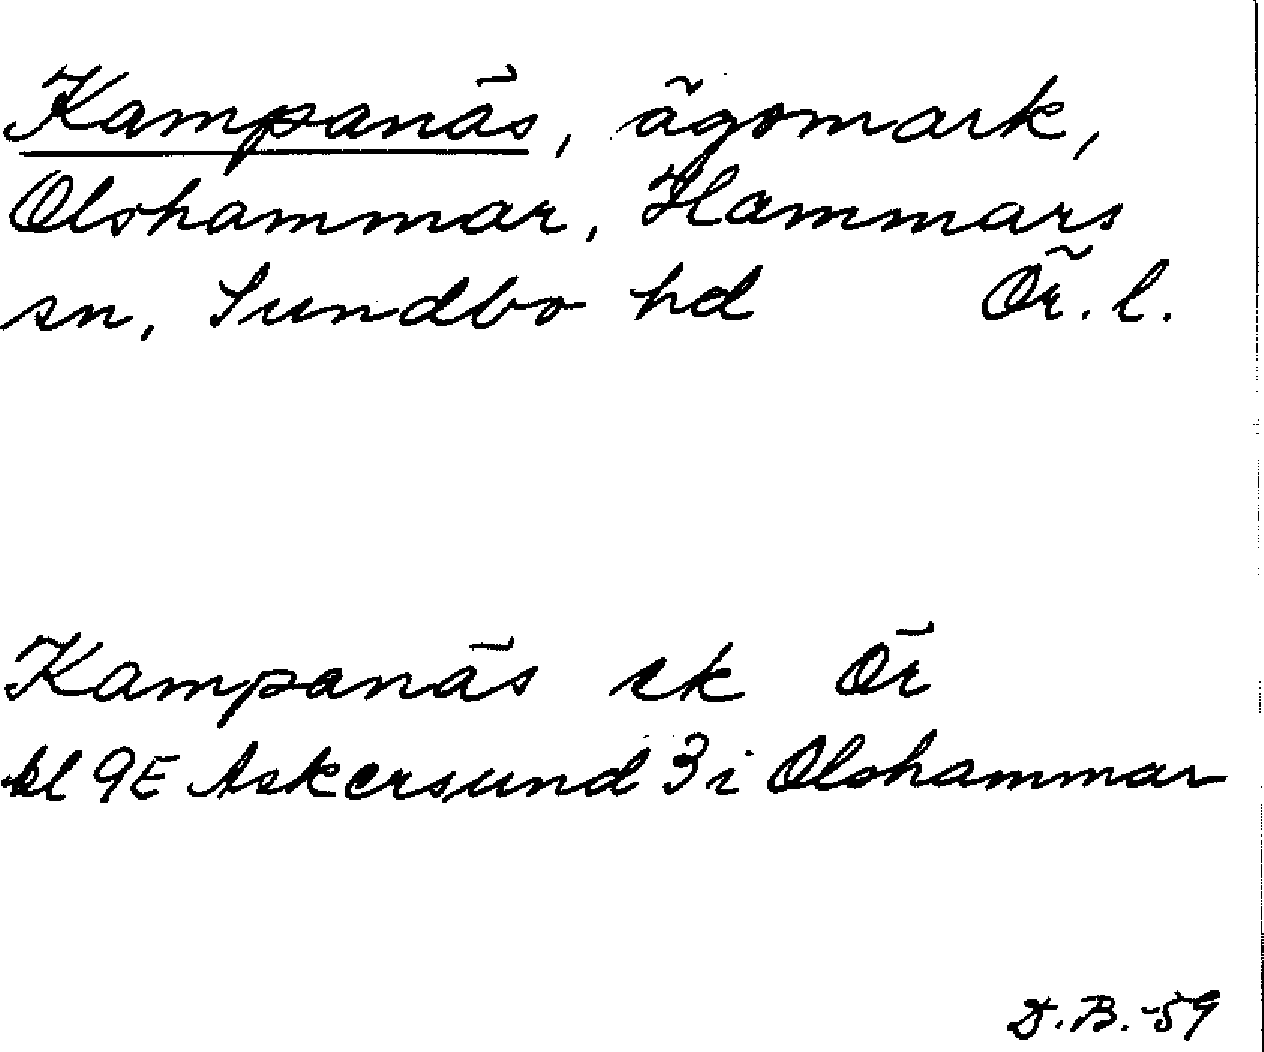 Kampanäs, ägomark,
Olshammar, Hammars
sn, Sundbo hd Ör. l.
Kampanäs ek Ör
bl 9E Askersund 3i Olshammar
D.B.-59